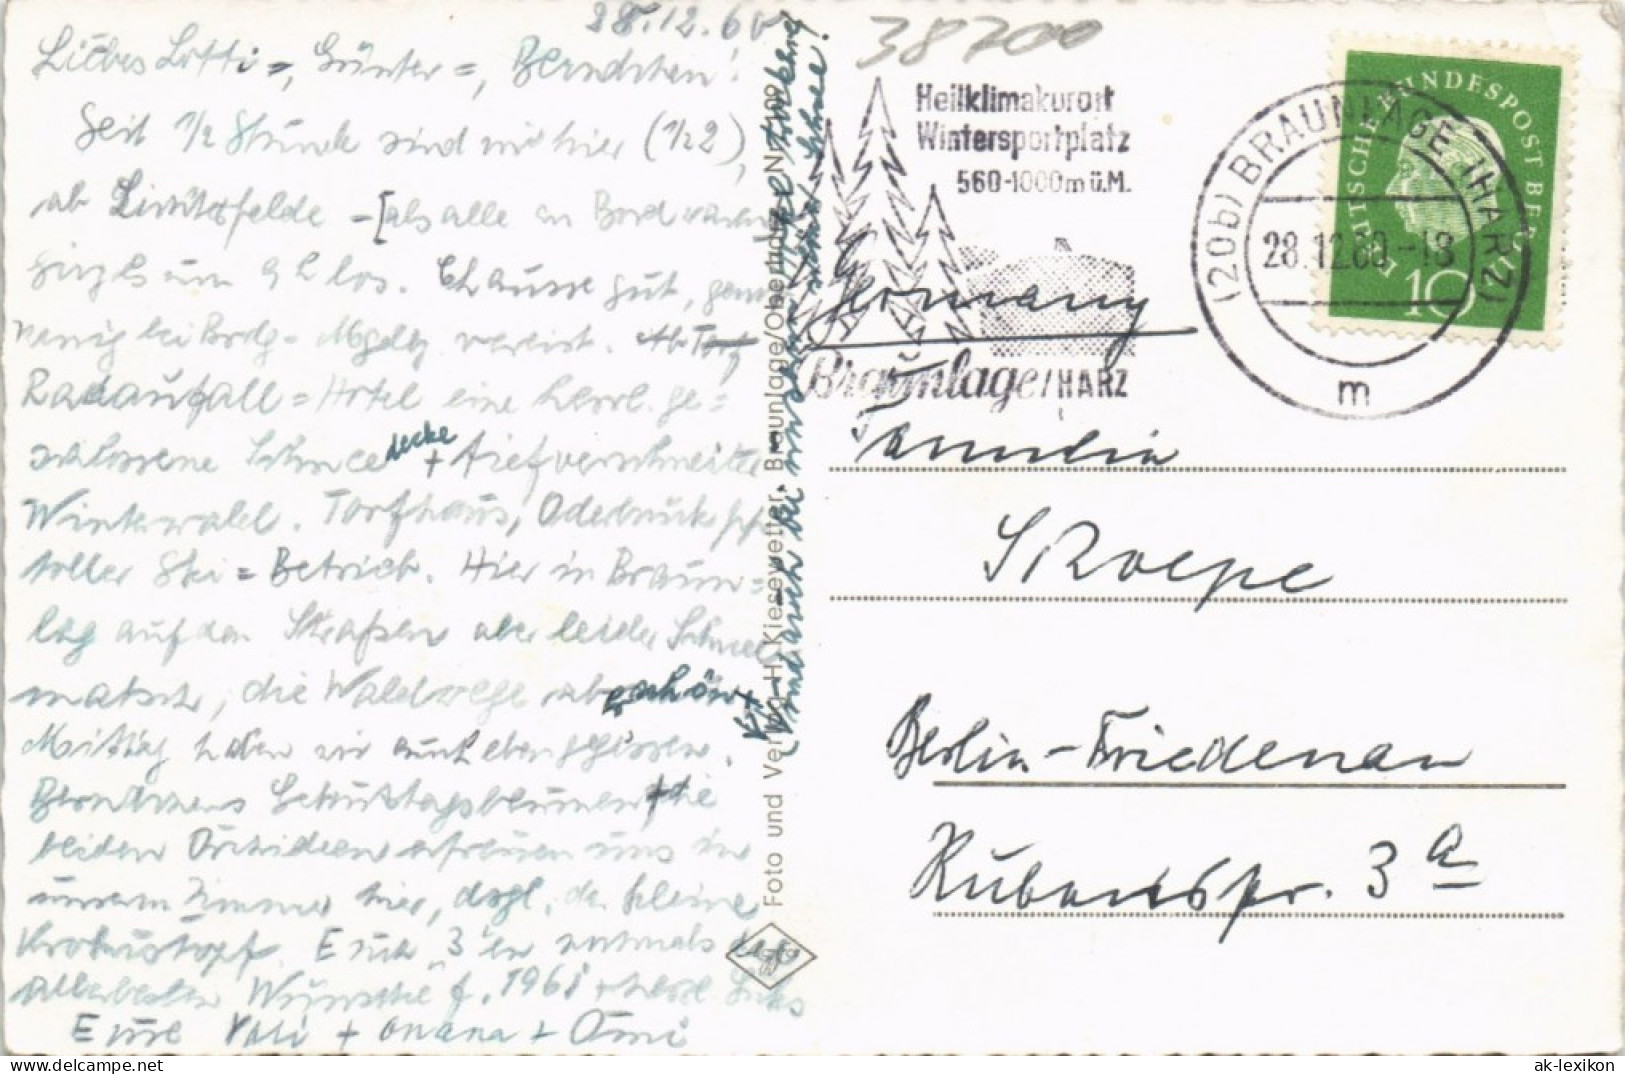 28.12.60
Liebes Lotti =, Günter =, Berndchen!
Seit 1/2 Stunde sind wir hier (1/2 2),
ab - [als alle an Bord waren
ging's um 9 h los. Chaussee gut,
wenig bei Brdg - Mgdbg vereist. Ab Torf
Radaufall = Hotel eine herrl. ge=
schlossene Schneedecke + tief verschneiter
Winterwald. Torfhaus, Oderbrück
toller Ski = Betrieb. Hier in Braun=
lag auf den Straßen aber leider Schnee
matsch, die Waldwege aber schön.
Mittag haben wir auch eben gegessen.
Berndchens Geburtstagsblumen + die
beiden Orchideen erfreuen uns in
unserm Zimmer hier, dsgl. der kleine
Krokustopf. Euch 3'en nochmals die
allerbesten Wünsche f. 1961 + herzl. Grüße
Eure Vati + + Omi
Foto und Verlag H. Kiesewetter, Braunlage/Oberharz
38700
Heilklimakurort
Wintersportplatz
560-1000m ü.M.
Braunlage/HARZ
(20b) BRAUNLAGE (HARZ)
28.12.60-18
m
DEUTSCHE BUNDESPOST BERLIN
10
Germany
Familie
Berlin-Friedenau
Rubensstr. 3a
Agfa
delcampe.net
ak-lexikon